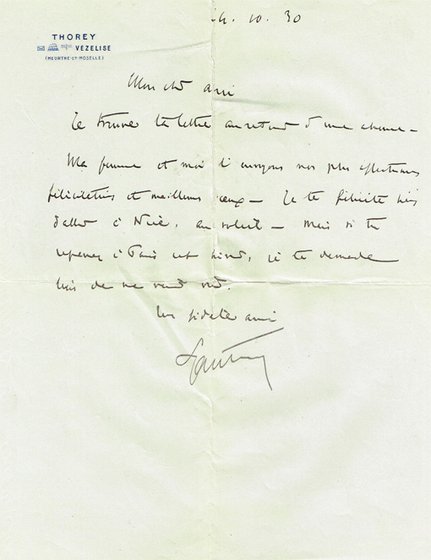 4. 10. 30
THOREY
VÉZELISE
(MEURTHE-ET-MOSELLE)
Mon cher ami
Je trouve ta lettre au retour d'une chasse -
Ma femme et moi t'envoyons nos plus affectueuses
félicitations et meilleurs vœux - Je te félicite
d'aller à Nice, au soleil - mais si tu
à Paris cet hiver, je te demande
de me
ton fidèle ami
Lyautey